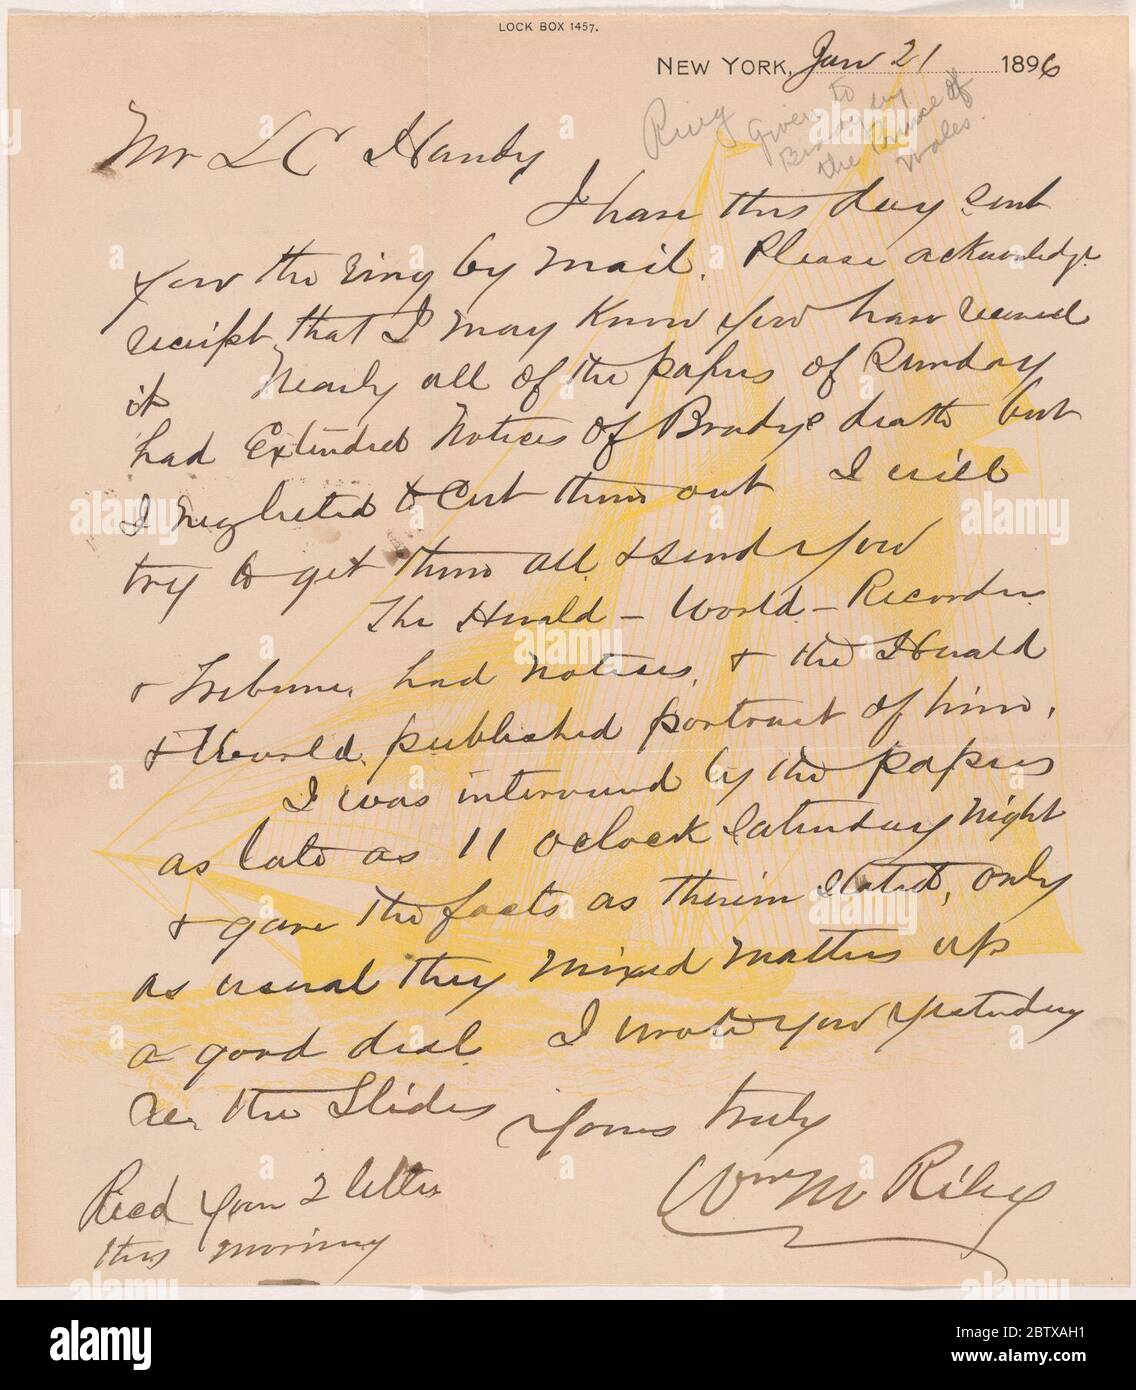 LOCK BOX 1457.
NEW YORK, Jan 21 1896
Ring Given to
Brady by
the Prince of
Wales.
Mr L C Handy
I have this day sent
you the ring by mail. Please acknowledge
receipt that I may know you have received
it Nearly all of the papers of Sunday
had Extended Notices of Bradys death but
I neglected to cut them out I will
try to get them all & send you
The Herald – World – Recorder
& Tribune, had notices, & the Herald
& World published portrait of him.
I was interviewed by the papers
as late as 11 oclock Saturday night
& gave the facts as therein stated, only
as usual they mixed matters up
a good deal I wrote you yesterday
re, the Slides
Yours truly
Wm M Riley
Recd your 2 letters
this morning
alamy
Image ID: 2BTXAH1
www.alamy.com